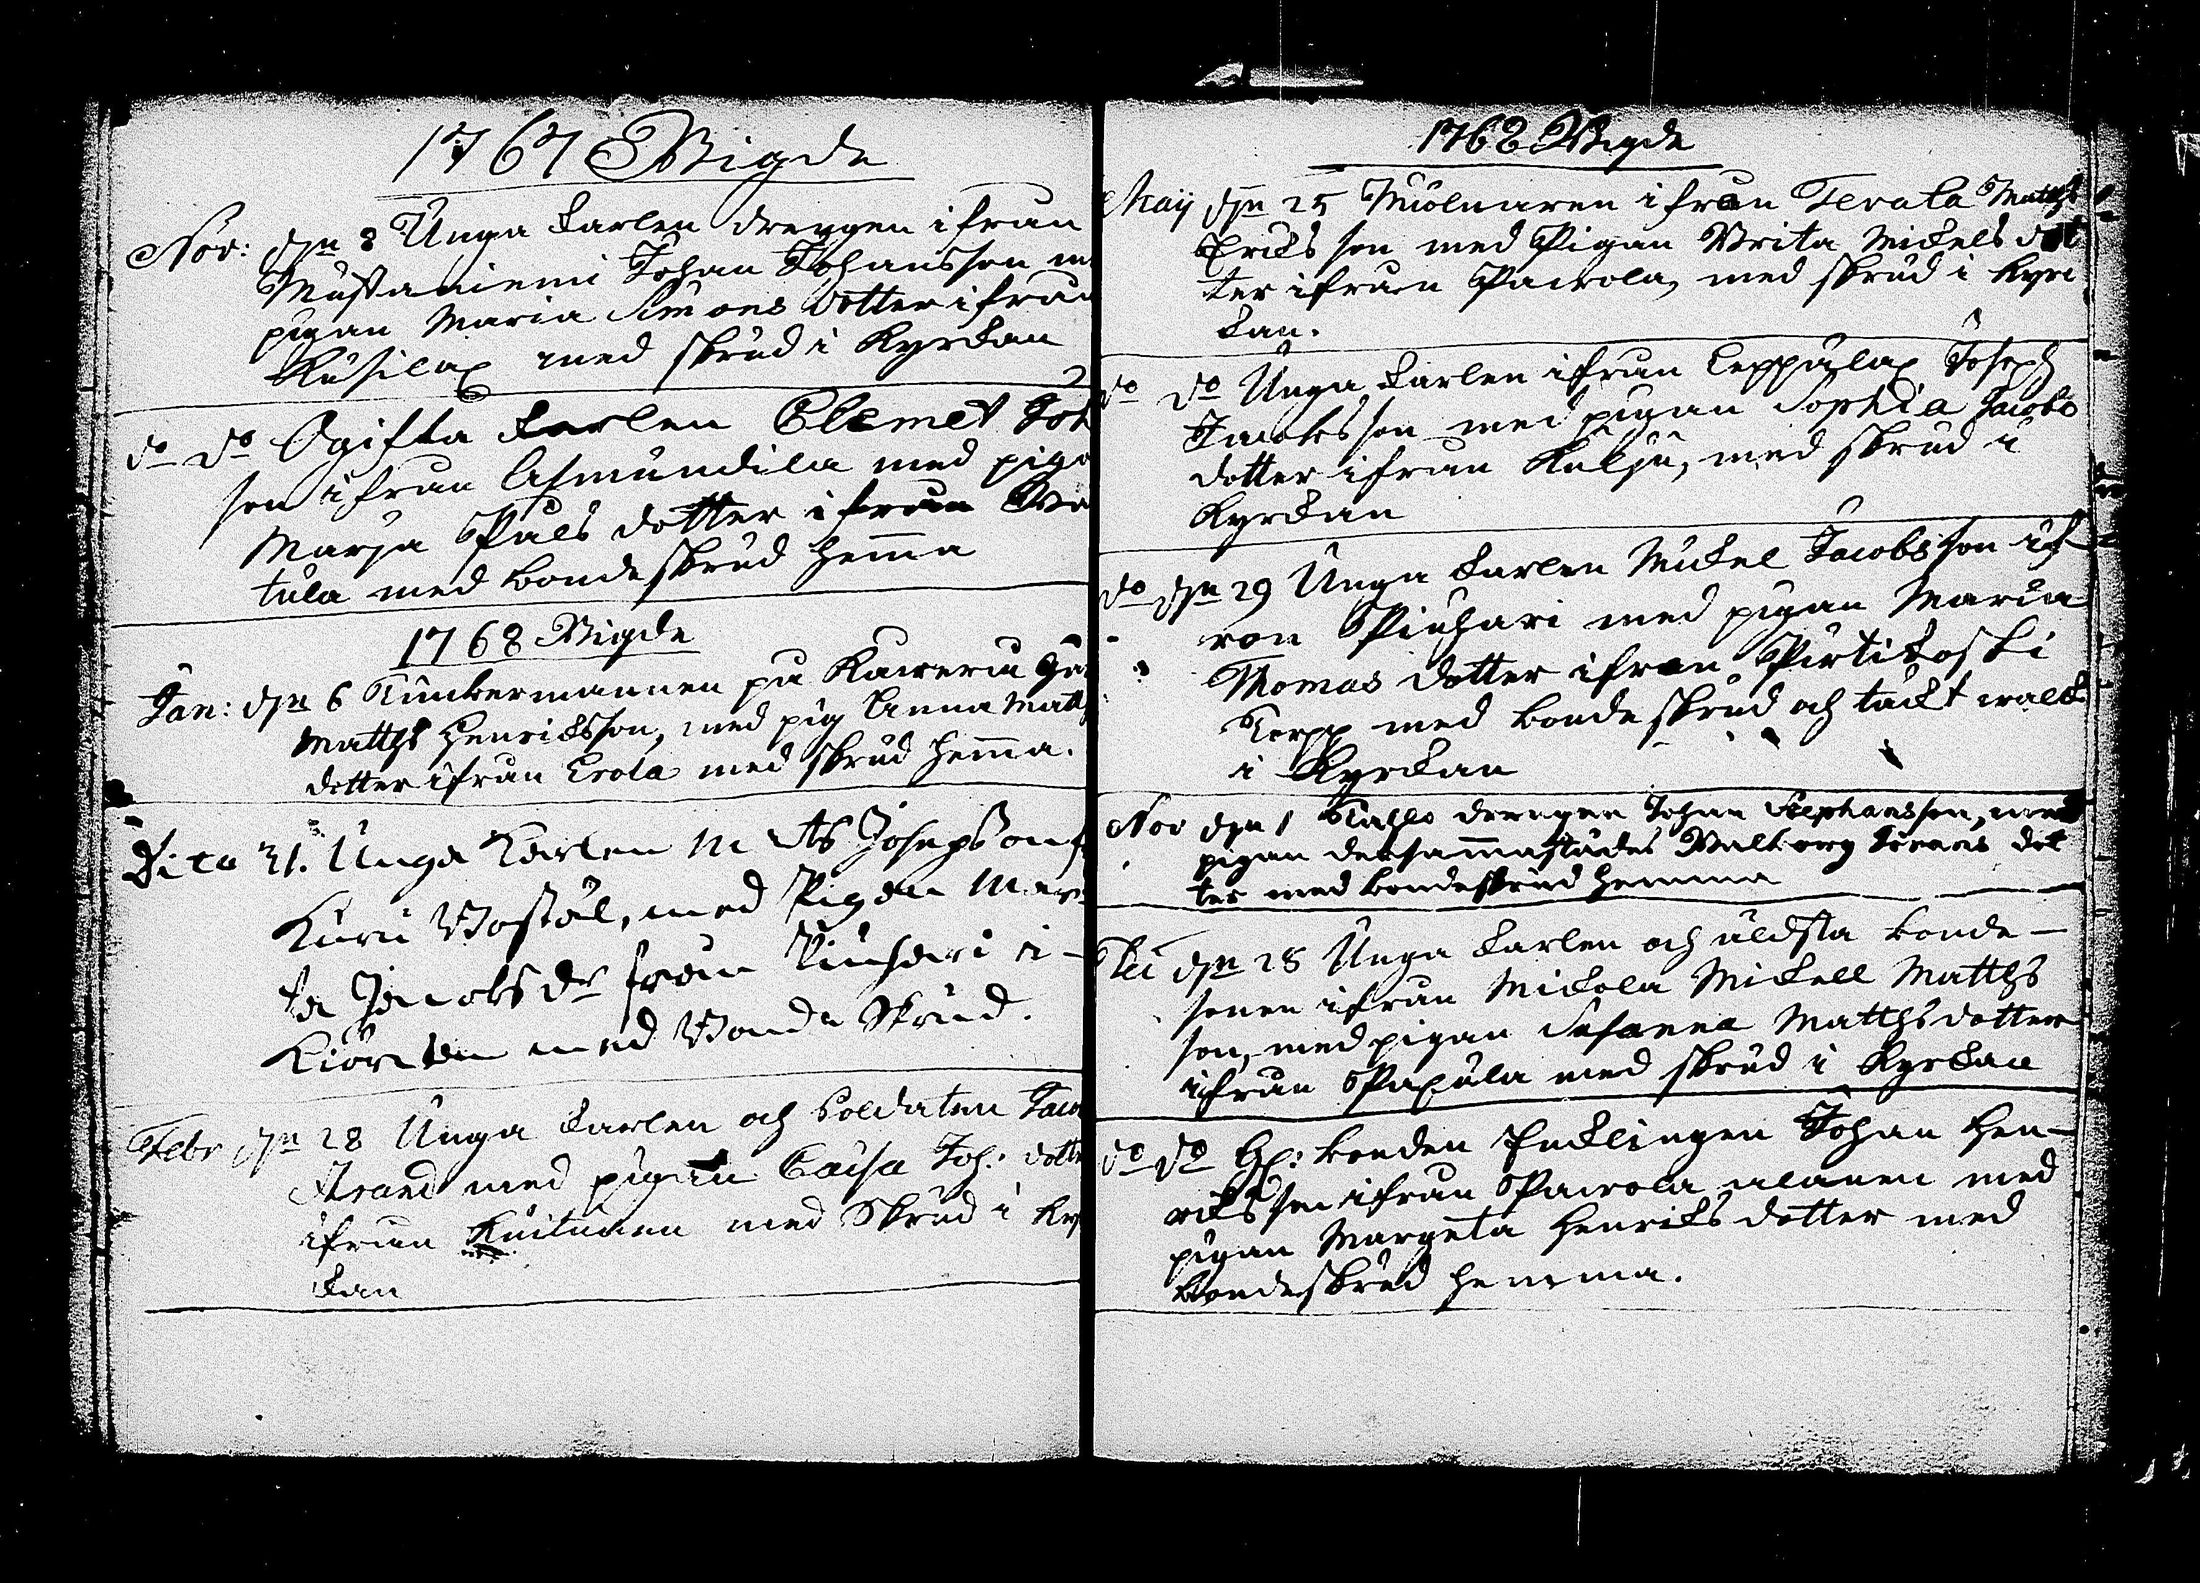 1767 Wigde
Nov: dn 8 Unga karlen drengen ifrån
Mustaniemi Johan Johansson m
pigan Maria Simons dotter ifrån
Kusilax med skrud i Kyrckan
do do Ogifta karlen Clemet Joh
son ifrån Asmundila med piga
Marja Påls dotter ifrån
tula med bondeskrud hemma
1768 Wigde
Jan: dn 6 Timbermannen på
Matths Henricksson, med pig Anna Matt
dotter ifrån Erola med skrud hemma.
Dito 31. Unga Karlen M Josepsson
Kuru Bostäl, med Pigan Mar
ta Jacobs dr från Piuhari i
Kiörckan med Bonde Skrud.
Febr dn 28 Unga karlen och Soldaten Jaco
Strand med pigan Caisa Joh: dotte
ifrån Kuitunen med Skrud i Ky
kan
1768 Wigde
Maij dn 25 Miölnaren ifrån Tervala Matths
Ericksson med Pigan Brita Mickels dot
ter ifrån Pairola, med skrud i Kyrc
kan.
do do Unga karlen ifrån Leppälax Joseph
Jacobsson med pigan Sophia Jacobs
dotter ifrån med skrud i
Kyrckan
do dn 29 Unga karlen Mickel Jacobsson if
rån Piuhari med pigan Maria
Thomas dotter ifrån Pirtikoski
Torpp med bonde skrud och täckt
i Kyrckan
Nov dn 1 drengen Johan Stephansson, med
pigan dersammastädes Walborg dot
ter med bondeskrud hemma
dn 28 Unga karlen och äldsta bonde-
sonen ifrån Mickola Mickell Matths
son, med pigan Susanna Matths dotter
ifrån med skrud i Kyrckan
do do bonden Encklingen Johan Hen-
ricksson ifrån Pairola med
pigan Margeta Henricks dotter med
bondeskrud hemma.